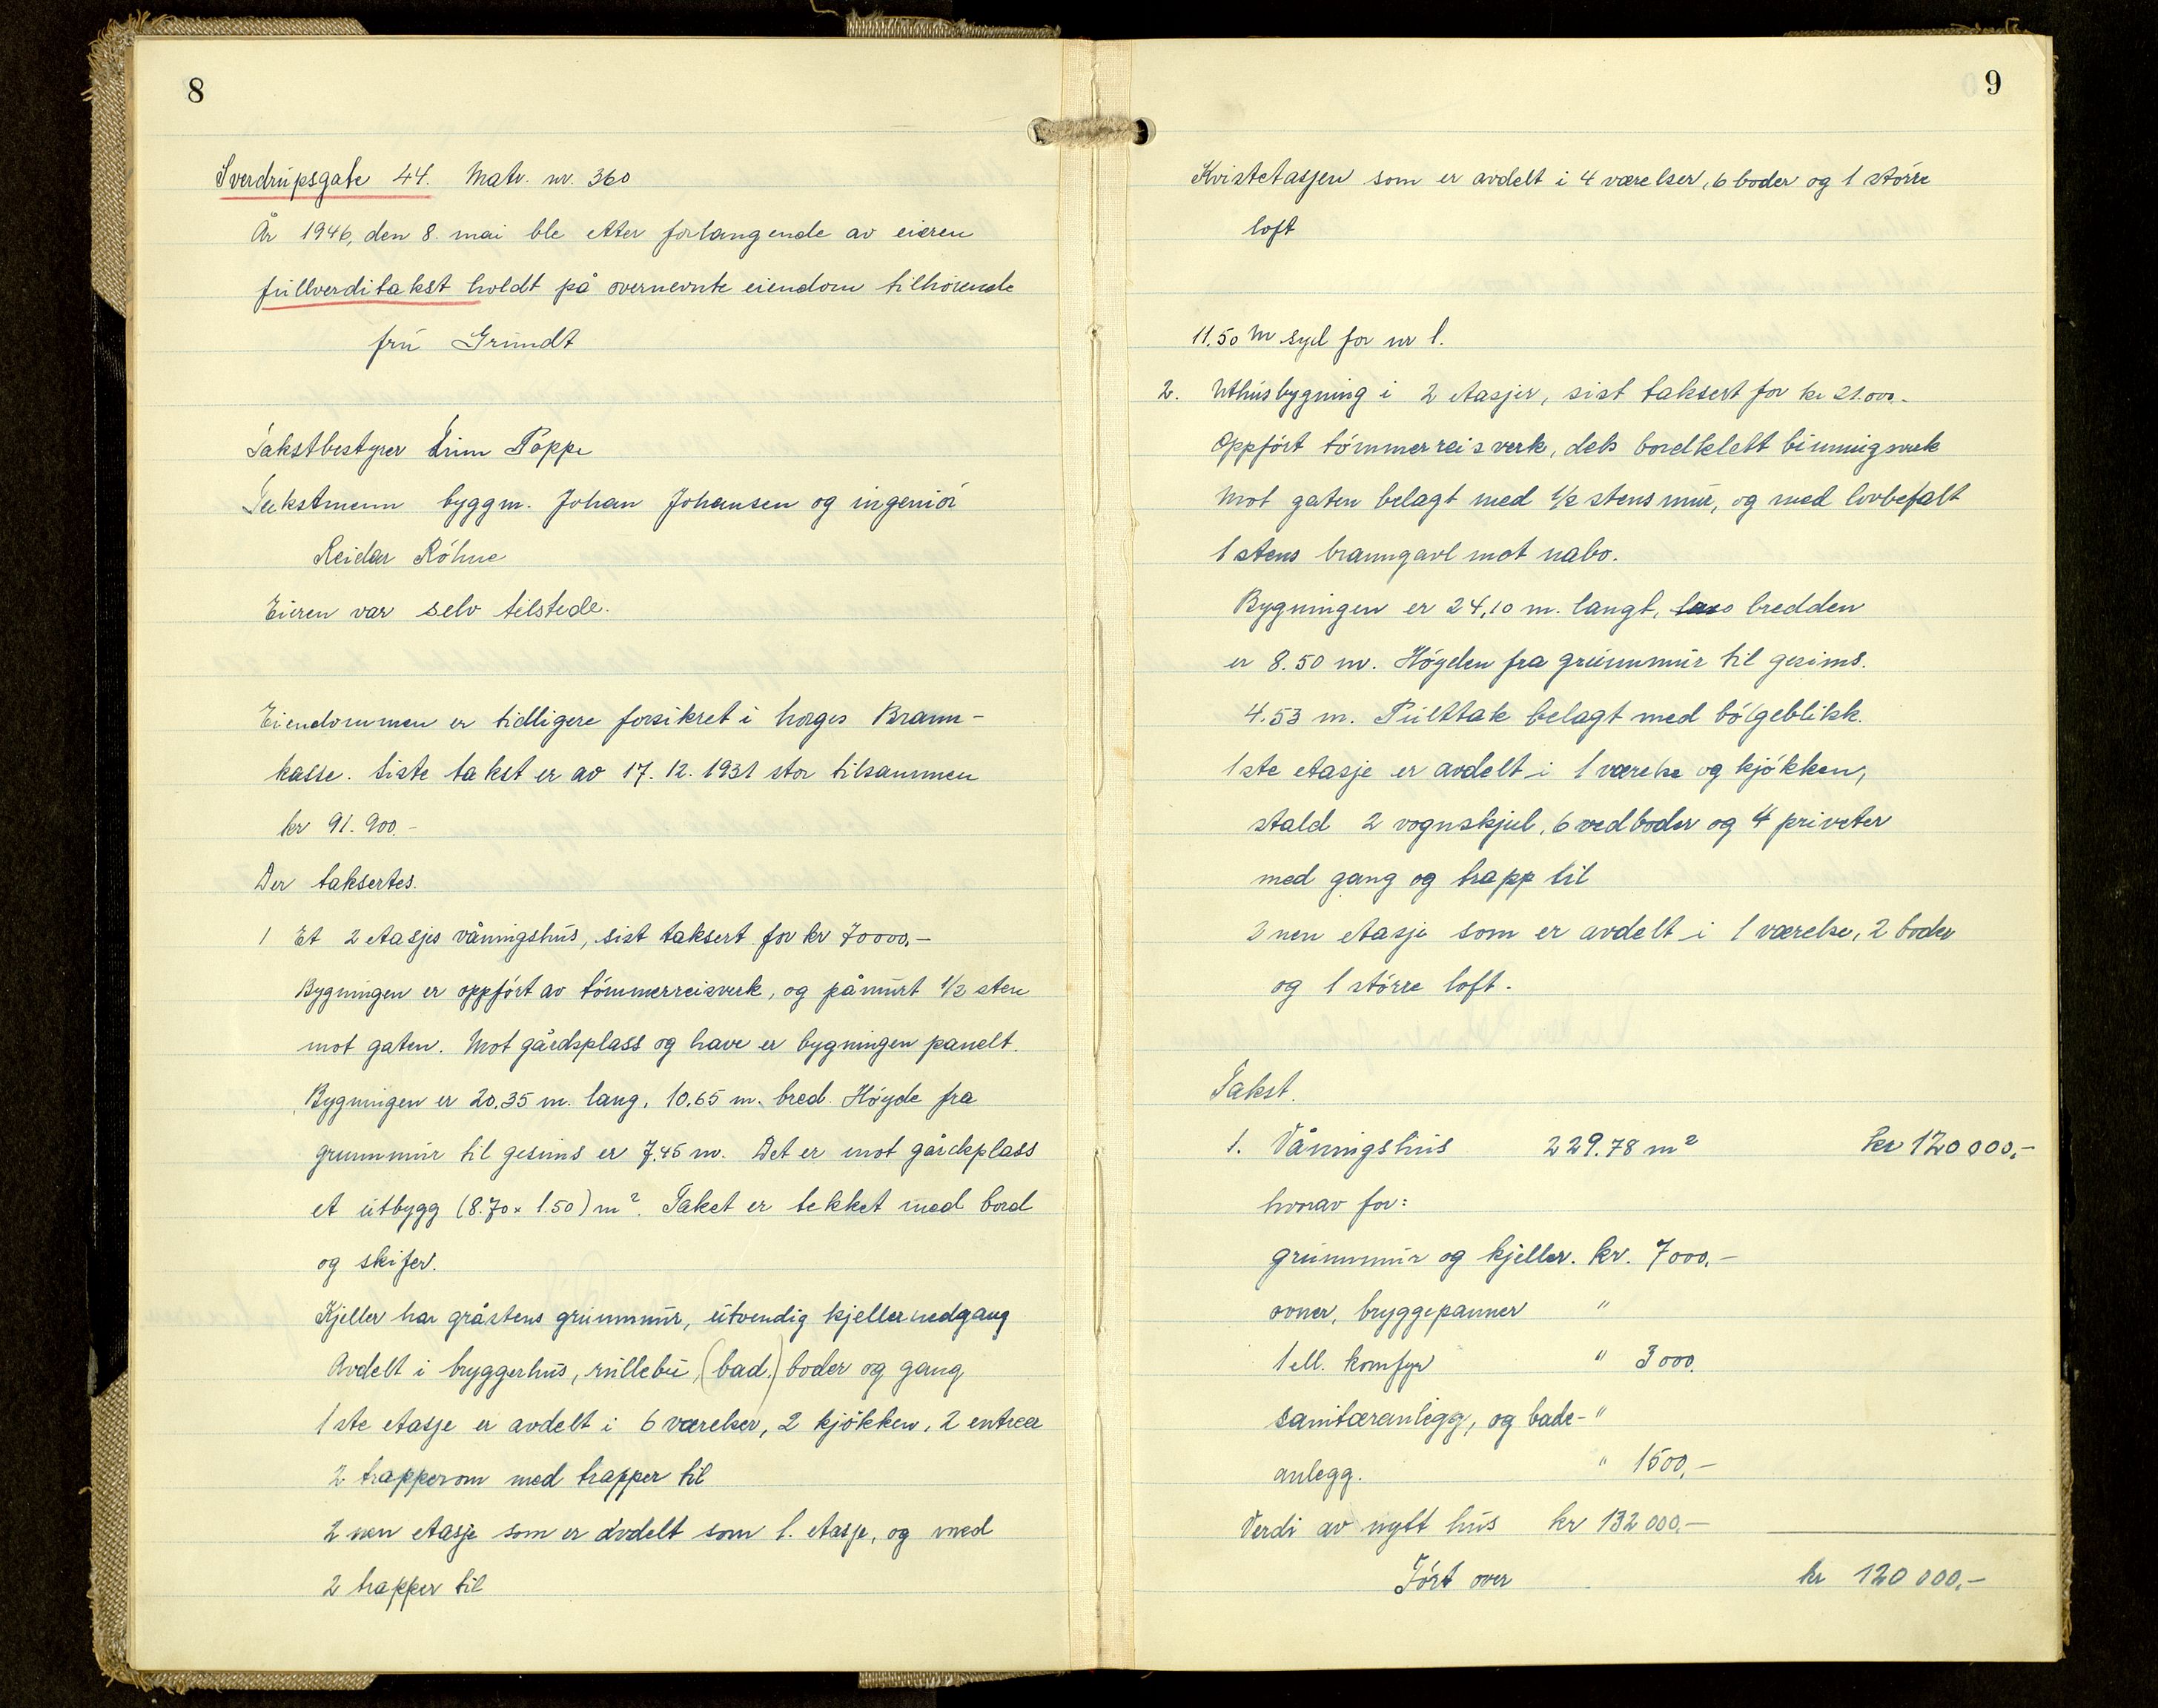 8
Sverdrupsgate 44. Matr. nr. 360
År 1946, den 8. mai ble etter forlangende av eieren
fullverditakst holdt på overnevnte eiendom tilhörende
fru Grundt
Takstbestyrer Poppe
Takstmenn byggm. Johan Johansen og ingeniör
Reidar Röhne
Eieren var selv tilstede.
Eiendommen er tidligere forsikret i Norges Brann-
kasse. Siste takst er av 17.12.1931 stor tilsammen
kr 91.900.-
Der taksertes.
1 Et 2 etasjes våningshus, sist taksert for kr 70000,-
Bygningen er oppfört av tömmerreisverk, og påmurt 1/2 sten
mot gaten. Mot gårdsplass og have er bygningen panelt.
Bygningen er 20,35 m. lang, 10,65 m. bred. Höyde fra
grunnmur til gesims er 7,45 m. Det er mot gårdsplass
et utbygg (8.70 x 1.50) m². Taket er tekket med bord
og skifer.
Kjeller har gråstens grunnmur, utvendig kjellernedgang
Avdelt i bryggerhus, rullebu, (bad,) boder og gang
1ste etasje er avdelt i 6 værelser, 2 kjökken, 2 entreer
2 trapperom med trapper til
2nen etasje som er avdelt som 1. etasje, og med
2 trapper til
9
Kvistetasjen som er avdelt i 4 værelser, 6 boder og 1 större
loft
11.50 m syd for nr 1.
2. Uthusbygning i 2 etasjer, sist taksert for kr 21.000.-
Oppfört tömmerreisverk, dels bordklett binningsverk
Mot gaten belagt med 1/2 stens mur, og med lovbefalt
1 stens branngavl mot nabo.
Bygningen er 24,10 m. langt, bredden
er 8.50 m. Högden fra grunnmur til gesims.
4.53 m. Pulttak belagt med bölgeblikk.
1ste etasje er avdelt i 1 værelse og kjökken,
stald 2 vognskjul, 6 vedboder og 4 priveter
med gang og trapp til
2nen etasje som er avdelt i 1 værelse, 2 boder
og 1 större loft.
Takst.
1. Våningshus 229.78 m² kr 120000,-
hvorav for:
grunnmur og kjeller. kr. 7000,-
ovner, bryggepanner "
1 ell. komfyr " 3000.
sanitæranlegg, og bade- "
anlegg. " 1500,-
Verdi av nytt hus kr 132000,-
Fört over kr 120000,-